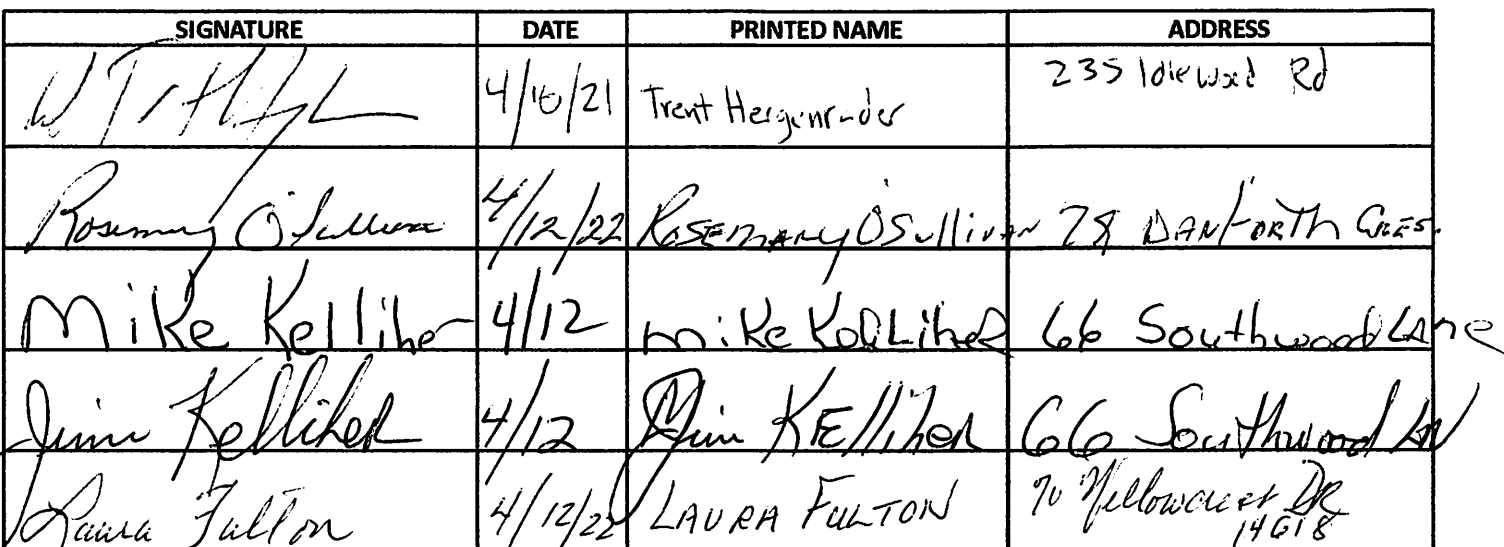 SIGNATURE DATE PRINTED NAME ADDRESS
4/16/21 Trent Hergenrader 235 Idlewood Rd
Rosemary O'Sullivan 4/12/22 Rosemary O'Sullivan 78 Danforth Cres.
Mike Kelliher 4/12 Mike Kelliher 66 Southwood Lane
Jimi Kelliher 4/12 Kelliher 66 Southwood LN
Laura Fulton 4/12/22 LAURA FULTON DR
14618